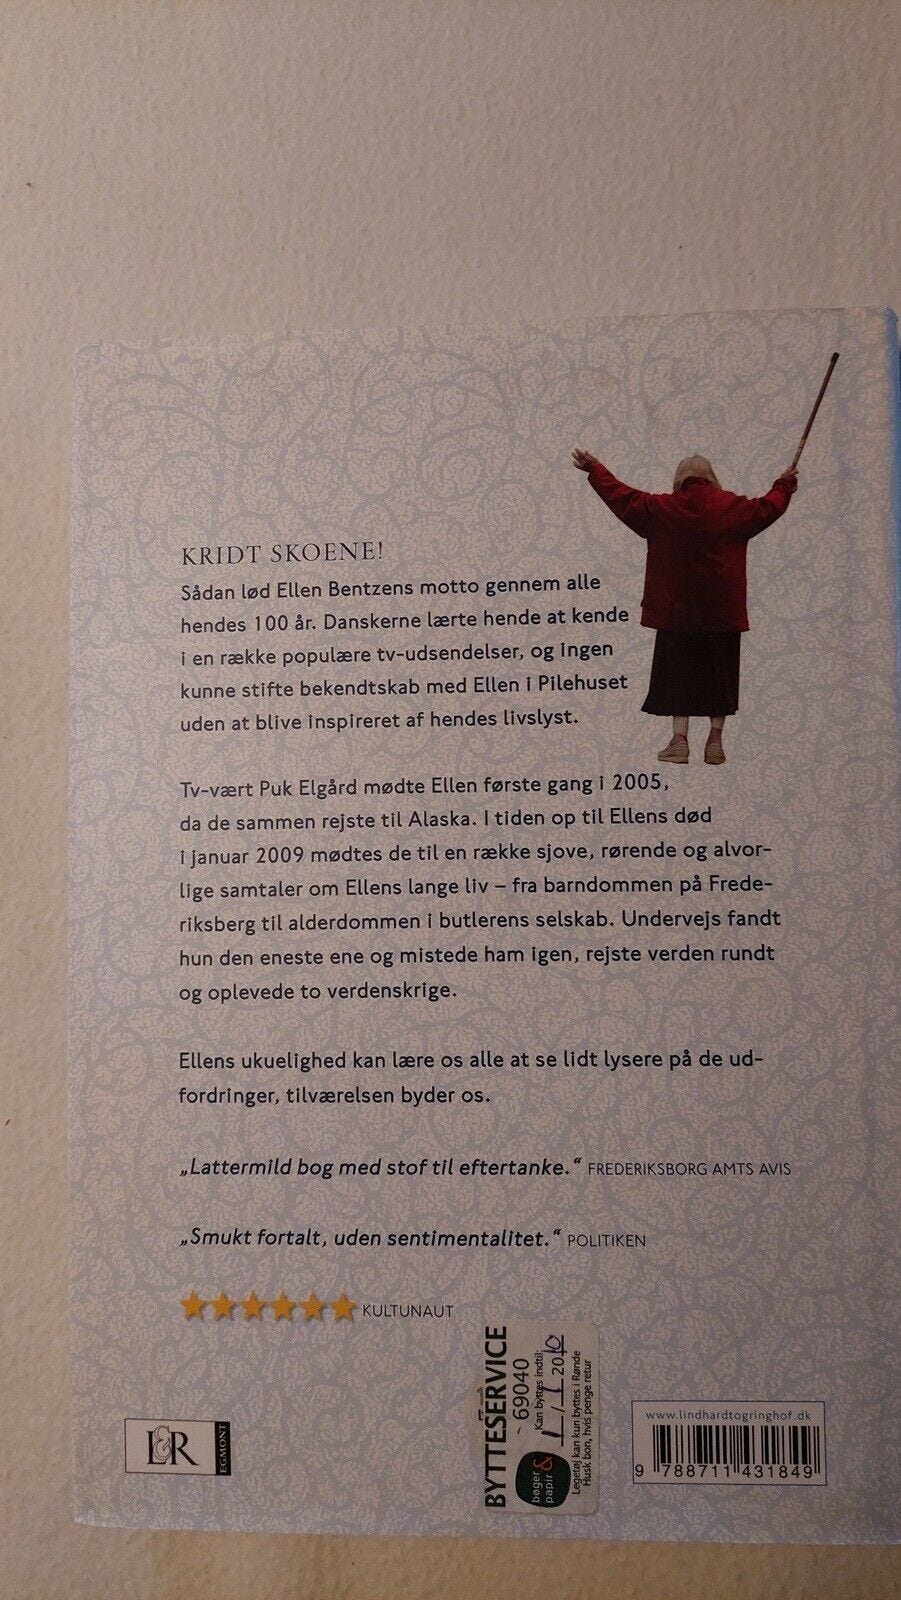 KRIDT SKOENE!
Sådan lød Ellen Bentzens motto gennem alle
hendes 100 år. Danskerne lærte hende at kende
i en række populære tv-udsendelser, og ingen
kunne stifte bekendtskab med Ellen i Pilehuset
uden at blive inspireret af hendes livslyst.
Tv-vært Puk Elgård mødte Ellen første gang i 2005,
da de sammen rejste til Alaska. I tiden op til Ellens død
i januar 2009 mødtes de til en række sjove, rørende og alvor-
lige samtaler om Ellens lange liv – fra barndommen på Frede-
riksberg til alderdommen i butlerens selskab. Undervejs fandt
hun den eneste ene og mistede ham igen, rejste verden rundt
og oplevede to verdenskrige.
Ellens ukuelighed kan lære os alle at se lidt lysere på de ud-
fordringer, tilværelsen byder os.
„Lattermild bog med stof til eftertanke.“ FREDERIKSBORG AMTS AVIS
„Smukt fortalt, uden sentimentalitet.“ POLITIKEN
KULTUNAUT
L&R
EGMONT
BYTTESERVICE
69040
Kan byttes indtil:
1/1 2010
Legetøj kan kun byttes i Rønde
Husk bon, hvis penge retur
bøger &
papir
www.lindhardtogringhof.dk
9 788711 431849